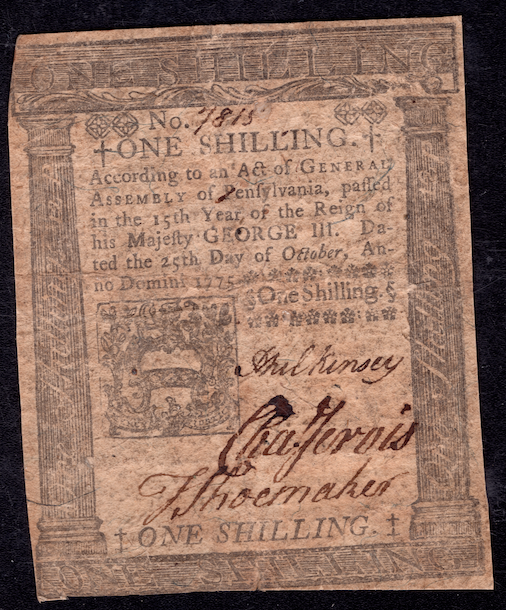 ONE SHILLING
No. 7815
ONE SHILLING.
According to an Act of GENERAL
ASSEMBLY of Pensylvania, paſſed
in the 15th Year of the Reign of
his Majeſty GEORGE III. Da-
ted the 25th Day of October, An-
no Domini 1775
One Shilling.
Phil Kinsey
Cha. Jervis
J Shoemaker
ONE SHILLING.
ONE SHILLING